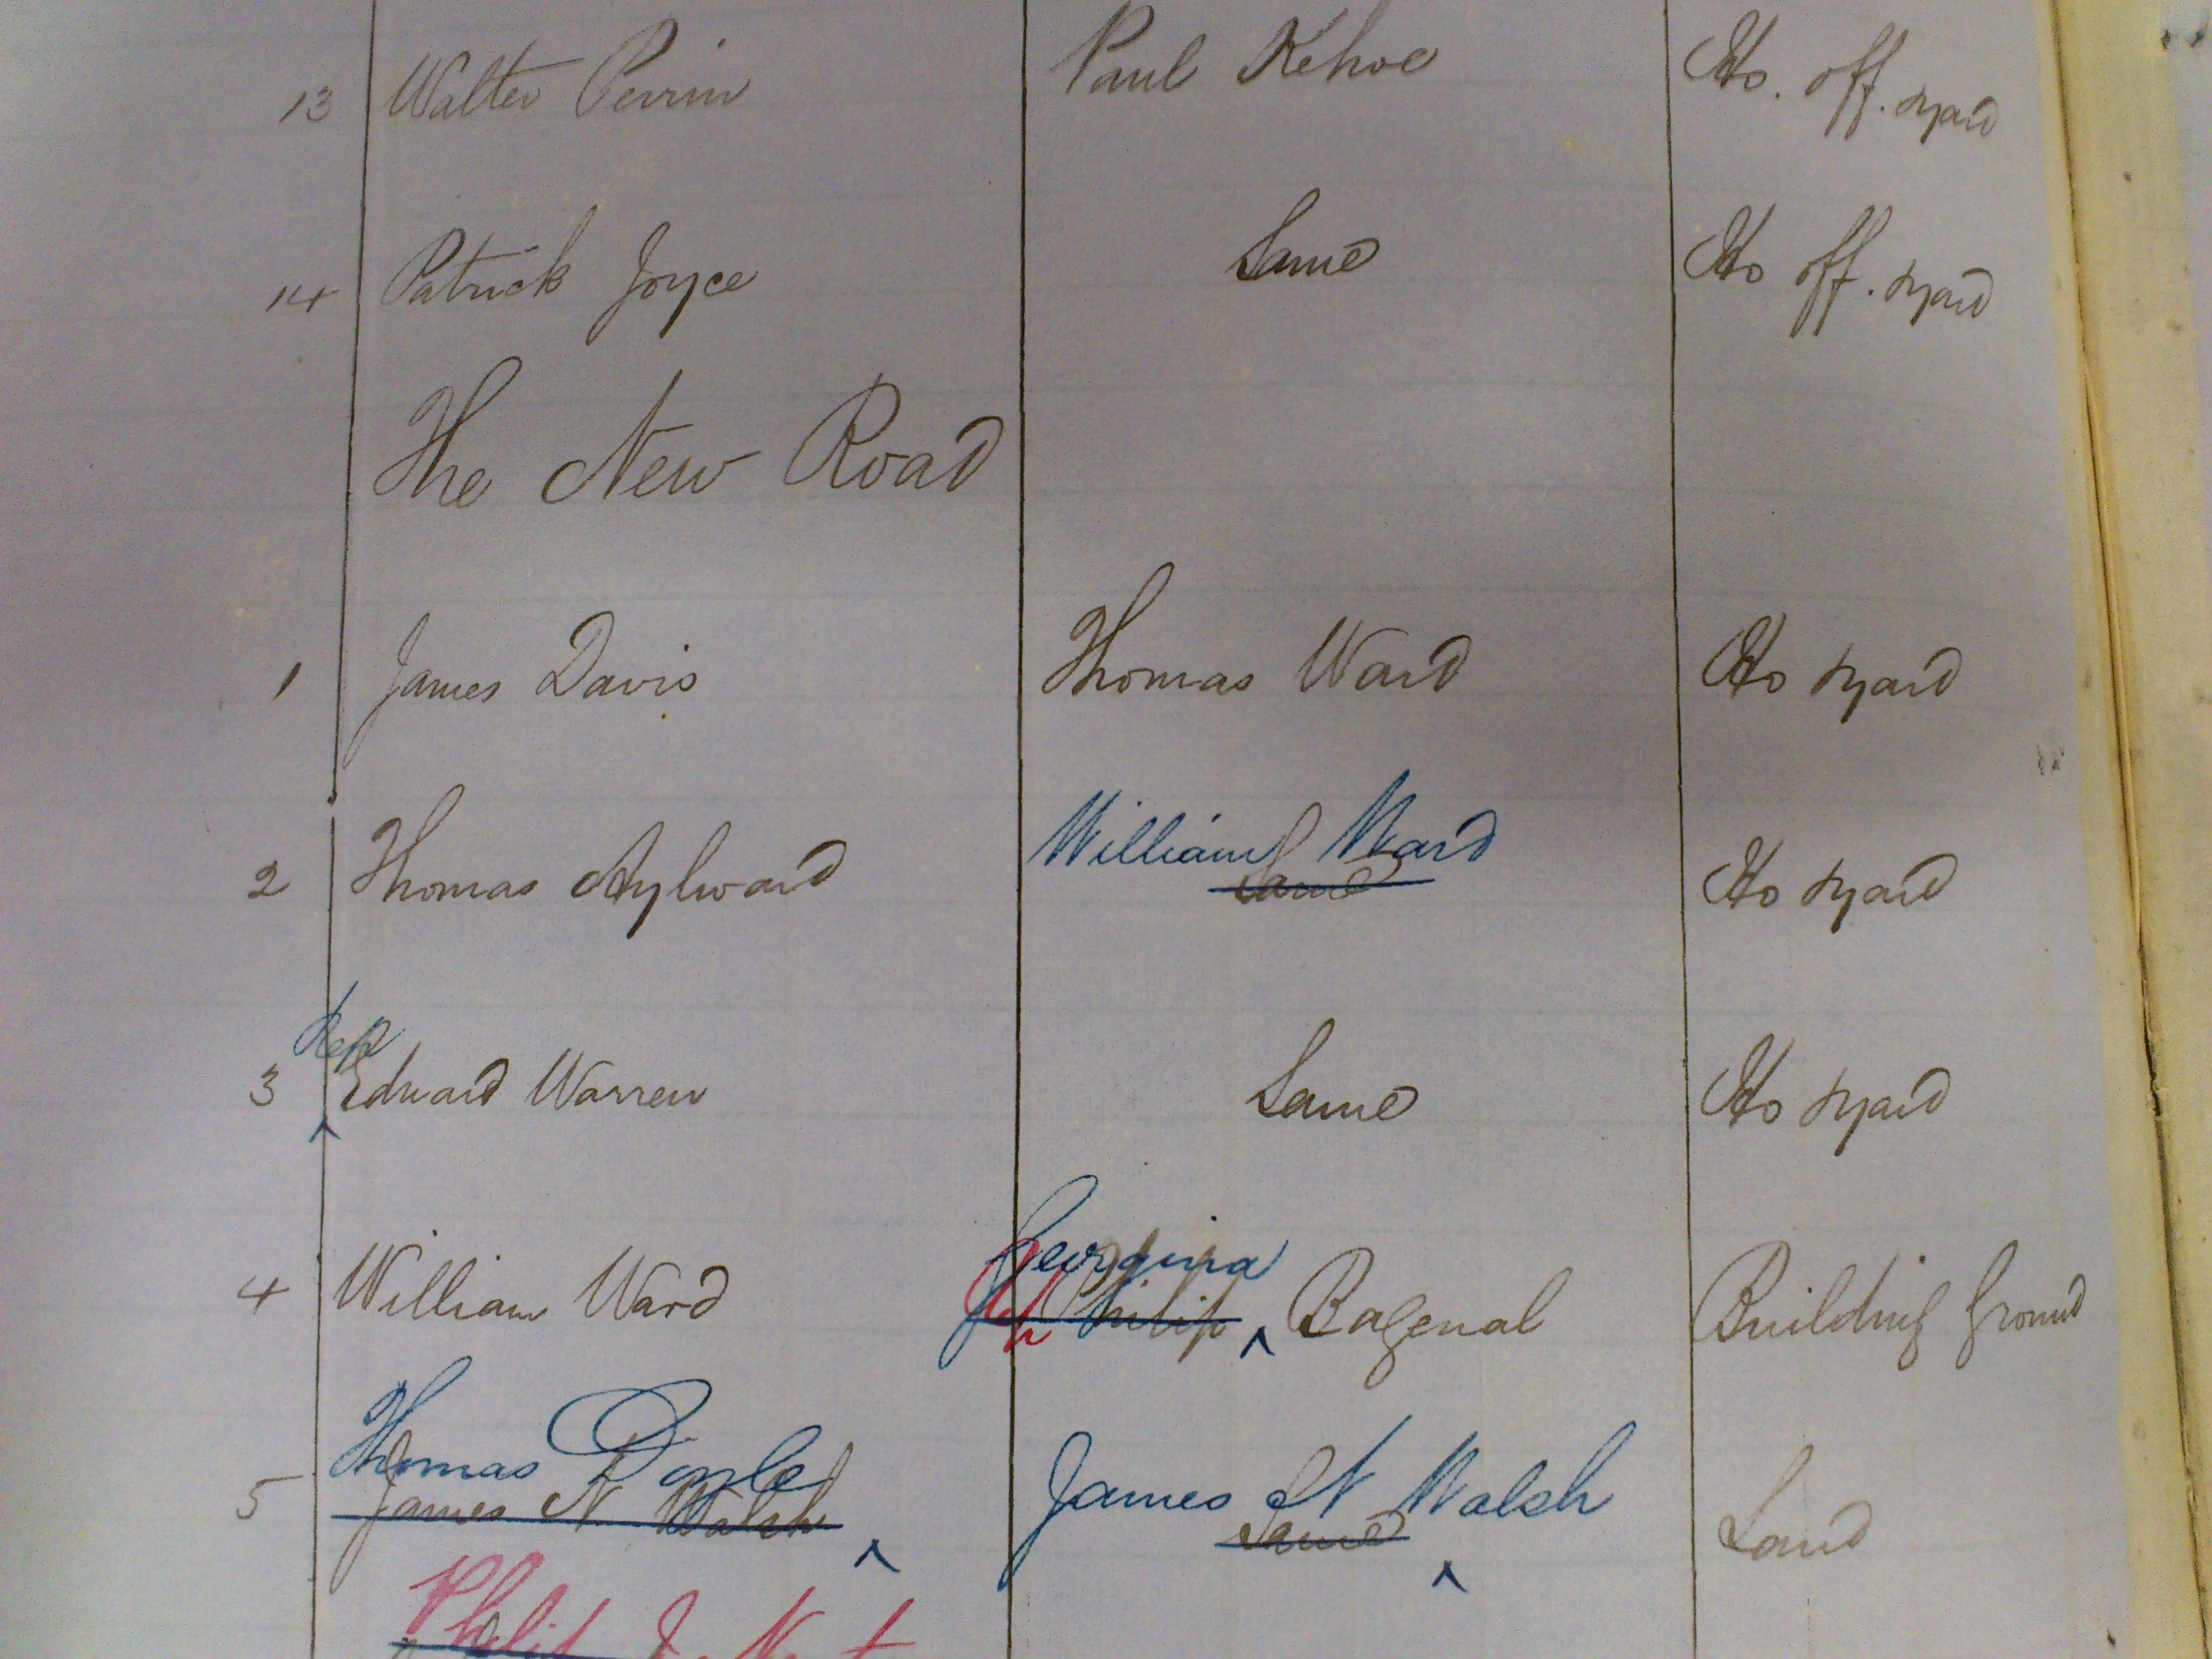 13 Walter Perrin Paul Kehoe Ho. off. & yard
14 Patrick Joyce Same Ho off. & yard
The New Road
1 James Davis Thomas Ward Ho & yard
William Ward
2 Thomas Aylward Same Ho & yard
Reps
3 Edward Warren Same Ho & yard
Georgina
4 William Ward Philip ^ Bagenal Building Ground
Thomas Doyle James N Walsh
5 James N. Walsh ^ Same ^ Land
Philip J.